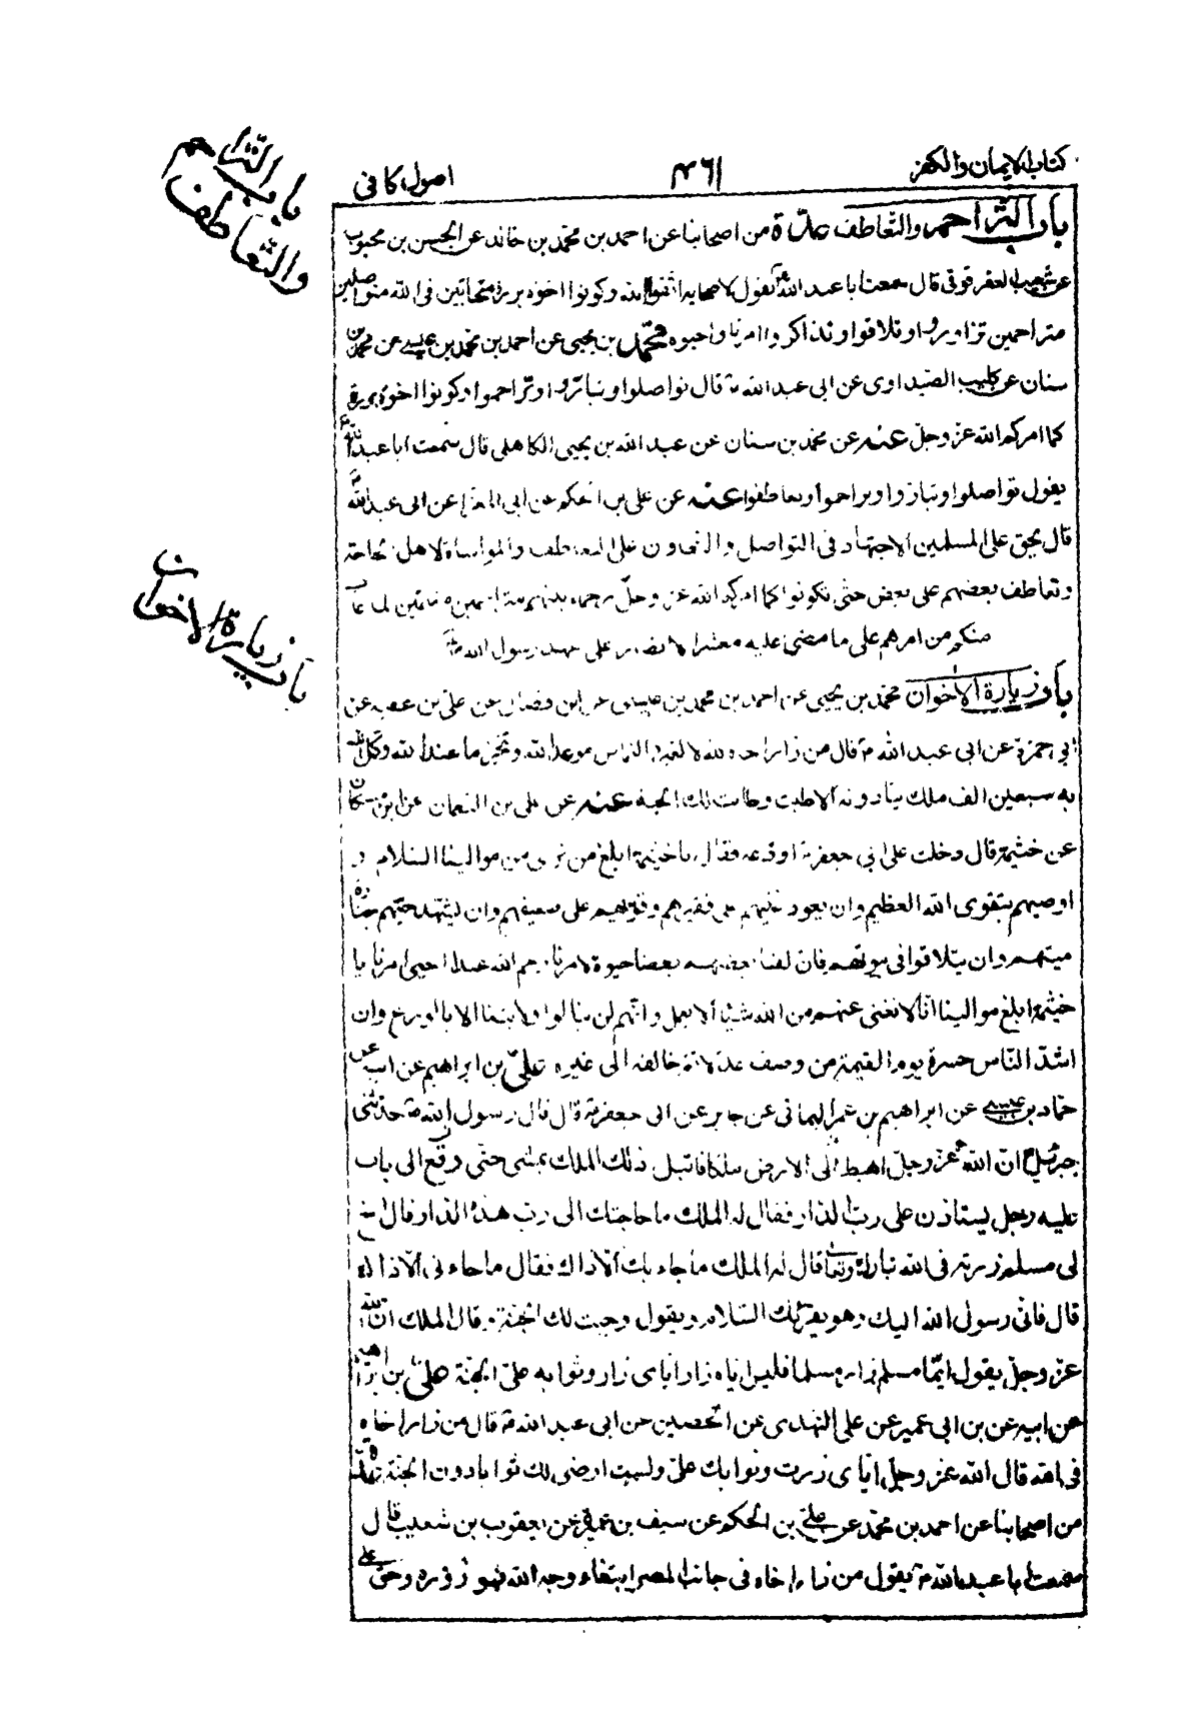 كتاب الايمان والكفر
٤٦١
اصول كافى
باب التراحم والتعاطف
باب زيارة الاخوان
باب التراحم والتعاطف عدّة من اصحابنا عن احمد بن محمّد بن خالد عن الحسن بن محبوب
عن شعيب العقرقوفى قال سمعت ابا عبد الله ع يقول لاصحابه اتقوا الله وكونوا اخوة بررة متحابّين فى الله متواصلين
متراحمين تزاوروا وتلاقوا وتذاكروا امرنا واحيوه محمّد بن يحيى عن احمد بن محمد بن عيسى عن محمد بن
سنان عن كليب الصّيداوى عن ابى عبد الله ع قال تواصلوا وتبارّوا وتراحموا وكونوا اخوة بررة
كما امركم الله عزّ وجلّ عنه عن محمّد بن سنان عن عبد الله بن يحيى الكاهلى قال سمعت ابا عبد الله ع
يقول تواصلوا وتبارّوا وتراحموا وتعاطفوا عنه عن على بن الحكم عن ابى المغرا عن ابى عبد الله ع
قال يحق على المسلمين الاجتهاد فى التواصل والتعاون على التعاطف والمواساة لاهل الحاجة
وتعاطف بعضهم على بعض حتّى تكونوا كما امركم الله عزّ وجلّ رحماء بينهم متراحمين مغتمّين لما غاب
عنكم من امرهم على ما مضى عليه معشر الانصار على عهد رسول الله ص
باب زيارة الاخوان محمّد بن يحيى عن احمد بن محمد بن عيسى عن ابن فضال عن علىّ بن عقبة عن
ابى حمزة عن ابى عبد الله ع قال من زار اخاه لله لا لغيره التماس موعد الله وتنجّز ما عند الله وكّل الله
به سبعين الف ملك ينادونه الا طبت وطابت لك الجنة عنه عن على بن النعمان عن ابن مسكان
عن خيثمة قال دخلت على ابى جعفر ع اودعه فقال يا خيثمة ابلغ من ترى من موالينا السّلام و
اوصيهم بتقوى الله العظيم وان يعود غنيّهم على فقيرهم وقويّهم على ضعيفهم وان يشهد حيّهم جنازة
ميتهم وان يتلاقوا فى بيوتهم فان لقيا بعضهم بعضا حيوة لامرنا رحم الله عبدا احيى امرنا يا
خيثمة ابلغ موالينا انّا لا نغنى عنهم من الله شيئا الا بعمل وانّهم لن ينالوا ولايتنا الا بالورع وان
اشدّ النّاس حسرة يوم القيمة من وصف عدلا ثمّ خالفه الى غيره علىّ بن ابراهيم عن ابيه عن
حمّاد بن عيسى عن ابراهيم بن عمر اليمانى عن جابر عن ابى جعفر ع قال قال رسول الله ص حدّثنى
جبرئيل ع انّ الله عزّ وجلّ اهبط الى الارض ملكا فاقبل ذلك الملك يمشى حتّى وقع الى باب
عليه رجل يستاذن على ربّ الدّار فقال له الملك ما حاجتك الى ربّ هذه الدّار قال اخ
لى مسلم زرته فى الله تبارك وتعالى قال له الملك ما جاء بك الّا ذاك فقال ما جاء بى الّا ذاك
قال فانّى رسول الله اليك وهو يقرئك السّلام ويقول وجبت لك الجنّة وقال الملك انّ الله
عزّ وجلّ يقول ايّما مسلم زار مسلما فليس ايّاه زار ايّاى زار وثوابه علىّ الجنّة علىّ بن ابراهيم
عن ابيه عن بن ابى عمير عن على النّهدى عن الحصين عن ابى عبد الله ع قال من زار اخاه
فى الله قال الله عزّ وجلّ ايّاى زرت وثوابك علىّ ولست ارضى لك ثوابا دون الجنّة عدّة
من اصحابنا عن احمد بن محمّد عن علىّ بن الحكم عن سيف بن عميرة عن يعقوب بن شعيب قال
سمعت ابا عبد الله ع يقول من زار اخاه فى جانب المصر ابتغاء وجه الله فهو زوره وحقّ على